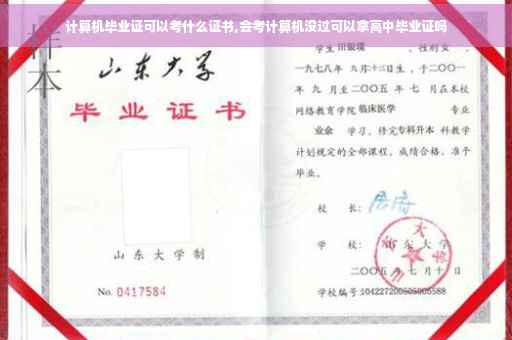 计算机毕业证可以考什么证书,会考计算机没过可以拿高中毕业证吗
样本
山东大学
毕业证书
山东大学制
No. 0417584
学生 田银瑞 ,性别女,
一九七八年 九月十三日生,于二〇〇一
年 九 月至二〇〇五 年 七 月在本校
网络教育学院 临床医学 专业
业余 学习,修完专科升本 科教学
计划规定的全部课程,成绩合格,准予
毕业。
校 长:
学 校: 山东大学
二〇〇五 年 七 月 十 日
学校编号:104227200505005588